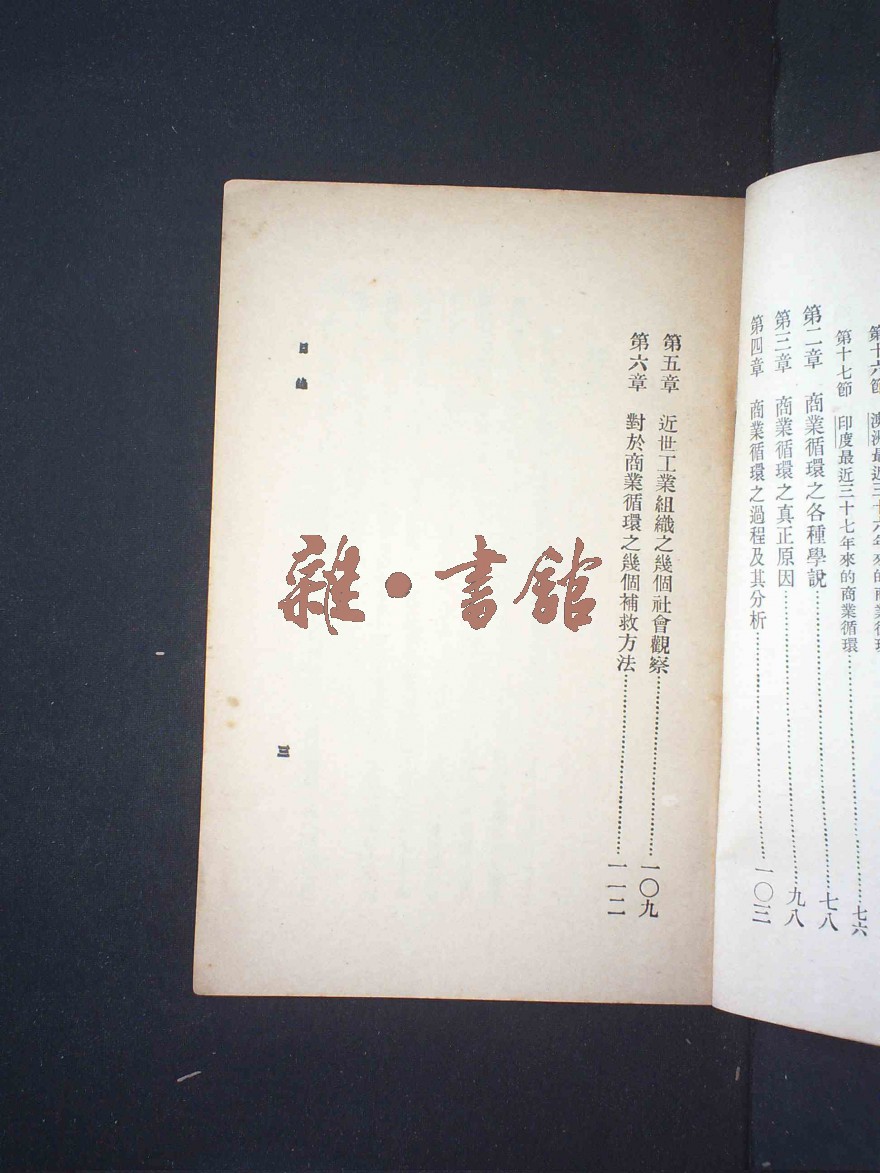 第十六節 澳洲最近三十六年來的商業循環
第十七節 印度最近三十七年來的商業循環……七六
第二章 商業循環之各種學說……七八
第三章 商業循環之真正原因……九八
第四章 商業循環之過程及其分析……一〇三
第五章 近世工業組織之幾個社會觀察……一〇九
第六章 對於商業循環之幾個補救方法……一一二
目錄
三
雜·書館